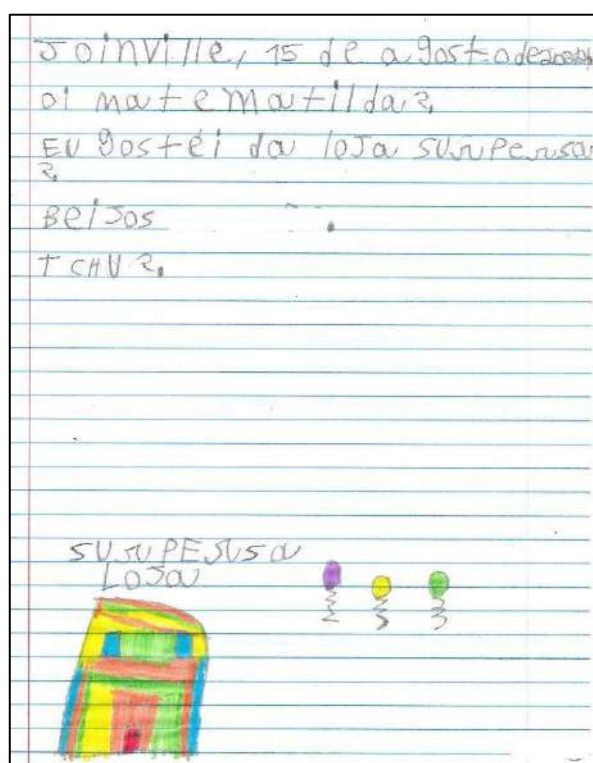 Joinville, 15 de agosto de
oi matematilda?
EU gostei da loja SUrPersa
?
BeiJos .
TCHU?
SUrPErsa
LOJa